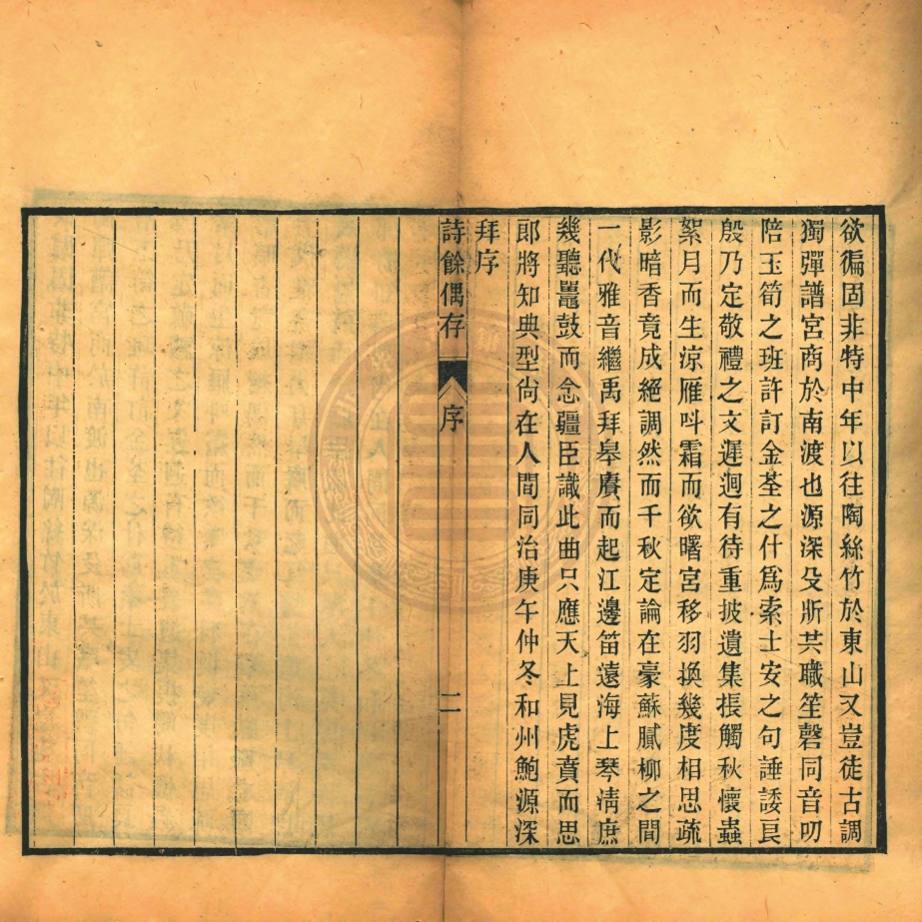 欲徧固非特中年以往陶絲竹於東山又豈徒古調
獨彈譜宮商於南渡也源深殳斨共職笙磬同音叨
陪玉筍之班許訂金荃之什爲索士安之句諈諉良
殷乃定敬禮之文遲迴有待重披遺集振觸秋懷蟲
絮月而生涼雁呌霜而欲曙宮移羽換幾度相思疏
影暗香竟成絕調然而千秋定論在豪蘇膩柳之間
一代雅音繼禹拜皋賡而起江邊笛遠海上琴淸庶
幾聽鼉鼓而念疆臣識此曲只應天上見虎賁而思
郎將知典型尙在人間同治庚午仲冬和州鮑源深
拜序
詩餘偶存 序 二